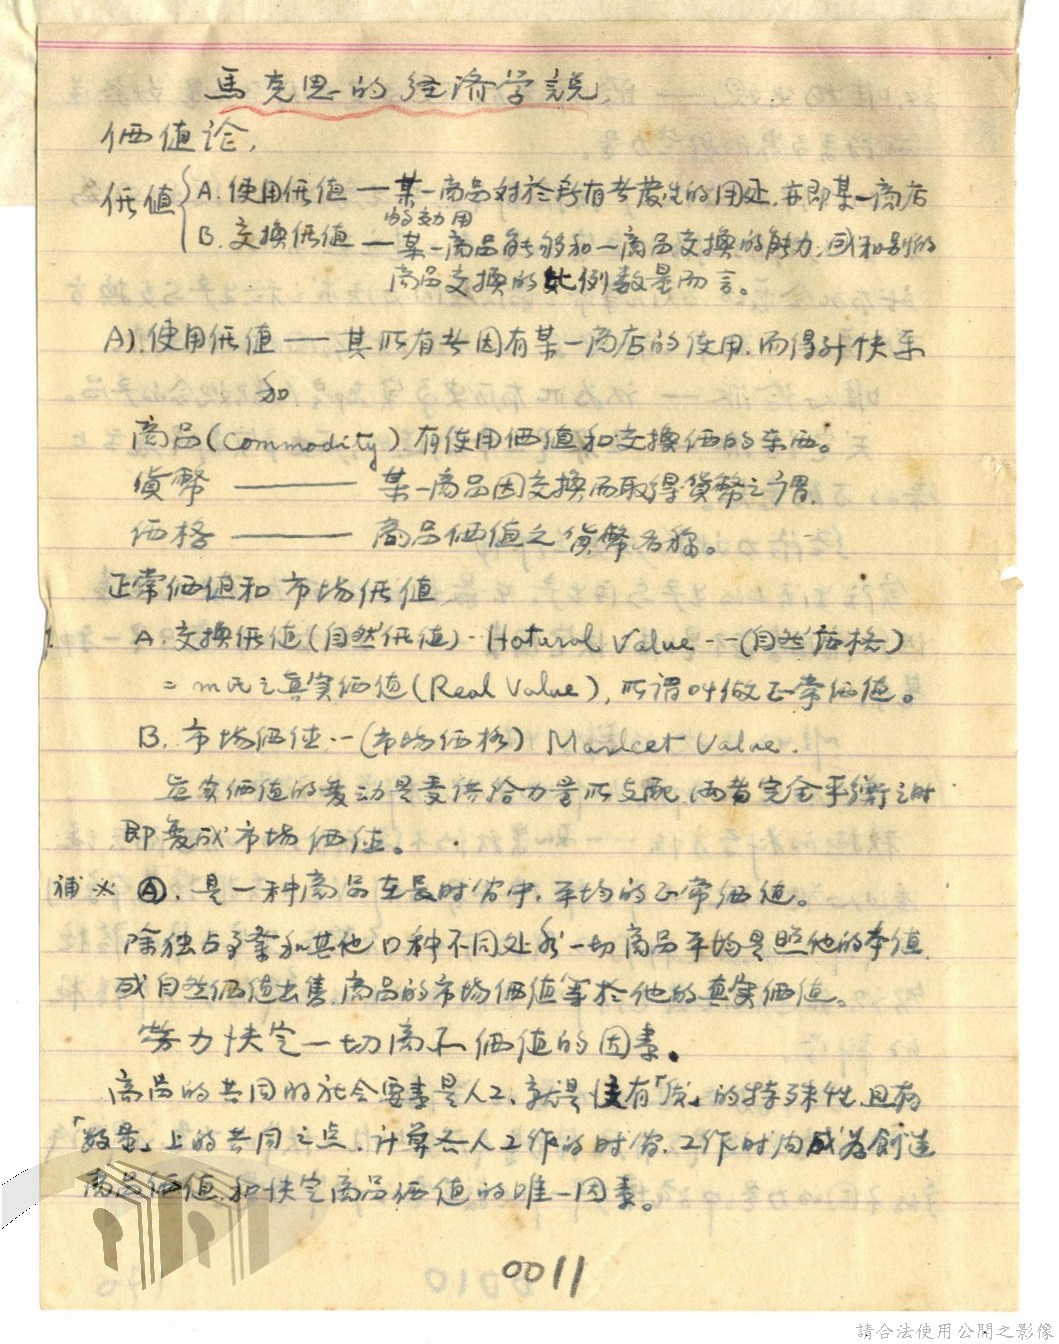 馬克思的经济学説
価値论,
価値 A. 使用価値 — 某一商品对於所有者發生的用处, 亦即某一商店
的効用
B. 交换価値 — 某一商品能够和一商品交换的能力, 或和别的
商品交换的比例数量而言。
A). 使用価値 — 其所有者因有某一商店的使用, 而得到快乐
和
商品(Commodity) 有使用価値和交换価的东西。
貨幣 —— 某一商品因交换而取得貨幣之谓,
価格 —— 商品価値之貨幣名称。
正常価値和市场価値
A. 交换価値(自然価値)·Natural Value --(自然価格)
= m氏之真实価値(Real Value), 所谓叫做正常価値。
B. 市场価値 --(市场価格) Market Value.
真实価値的変动是受供给力量所支配, 两者完全平衡之时
即変成市场価値。
補 ※ Ⓐ, 是一种商品在長时间中, 平均的正常価値。
除独占事業和其他口种不同处外一切商品平均是照他的本値,
或自然価値出售, 商品的市场価値等於他的真实価値。
劳力决定一切商品価値的因素。
商品的共同的社会要素是人工, 就是没有「质」的特殊性, 且有
「数量」上的共同之点, 计算各人工作的时间, 工作时间成为創造
商品価値, 和决定商品価値的唯一因素。
0011
請合法使用公開之影像